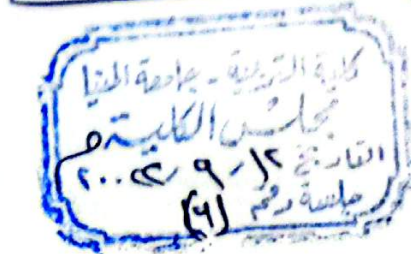 كلية التربية - جامعة المنيا
مجلس الكلية
التاريخ ١٢ / ٩ / ٢٠٢٢م
جلسة رقم (٩)